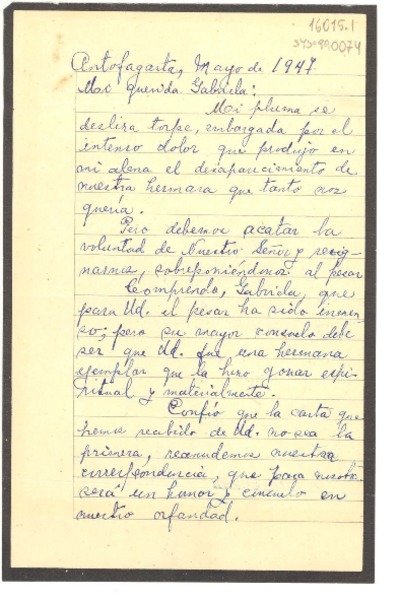 16015.1
Antofagasta, Mayo de 1947
Mi querida Gabriela:
Mi pluma se
desliza torpe, embargada por el
intenso dolor que produjo en
mi alma el desaparecimiento de
nuestra hermana que tanto nos
quería.
Pero debemos acatar la
voluntad de Nuestro Señor y resig-
narnos, sobreponiéndonos al pesar
Comprendo, Gabriela, que
para Ud. el pesar ha sido inmen-
so; pero su mayor consuelo debe
ser que Ud. fué una hermana
ejemplar que la hizo gozar espi-
ritual y materialmente.
Confío que la carta que
hemos recibido de Ud. no sea la
primera, reanudemos nuestra
correspondencia, que para nosotras
será un honor y consuelo en
nuestra orfandad.